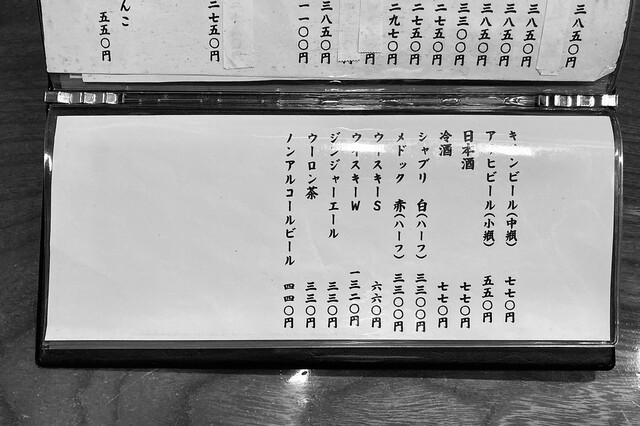 三八五〇円
三八五〇円
三八五〇円
三八五〇円
三三〇〇円
二七五〇円
二七五〇円
二九七〇円
円
三八五〇円
一一〇〇円
二七五〇円
んこ 五五〇円
キリンビール(中瓶) 七七〇円
アサヒビール(小瓶) 五五〇円
日本酒 七七〇円
冷酒 七七〇円
シャブリ 白(ハーフ) 三三〇〇円
メドック 赤(ハーフ) 三三〇〇円
ウィスキーS 六六〇円
ウィスキーW 一三二〇円
ジンジャーエール 三三〇円
ウーロン茶 三三〇円
ノンアルコールビール 四四〇円